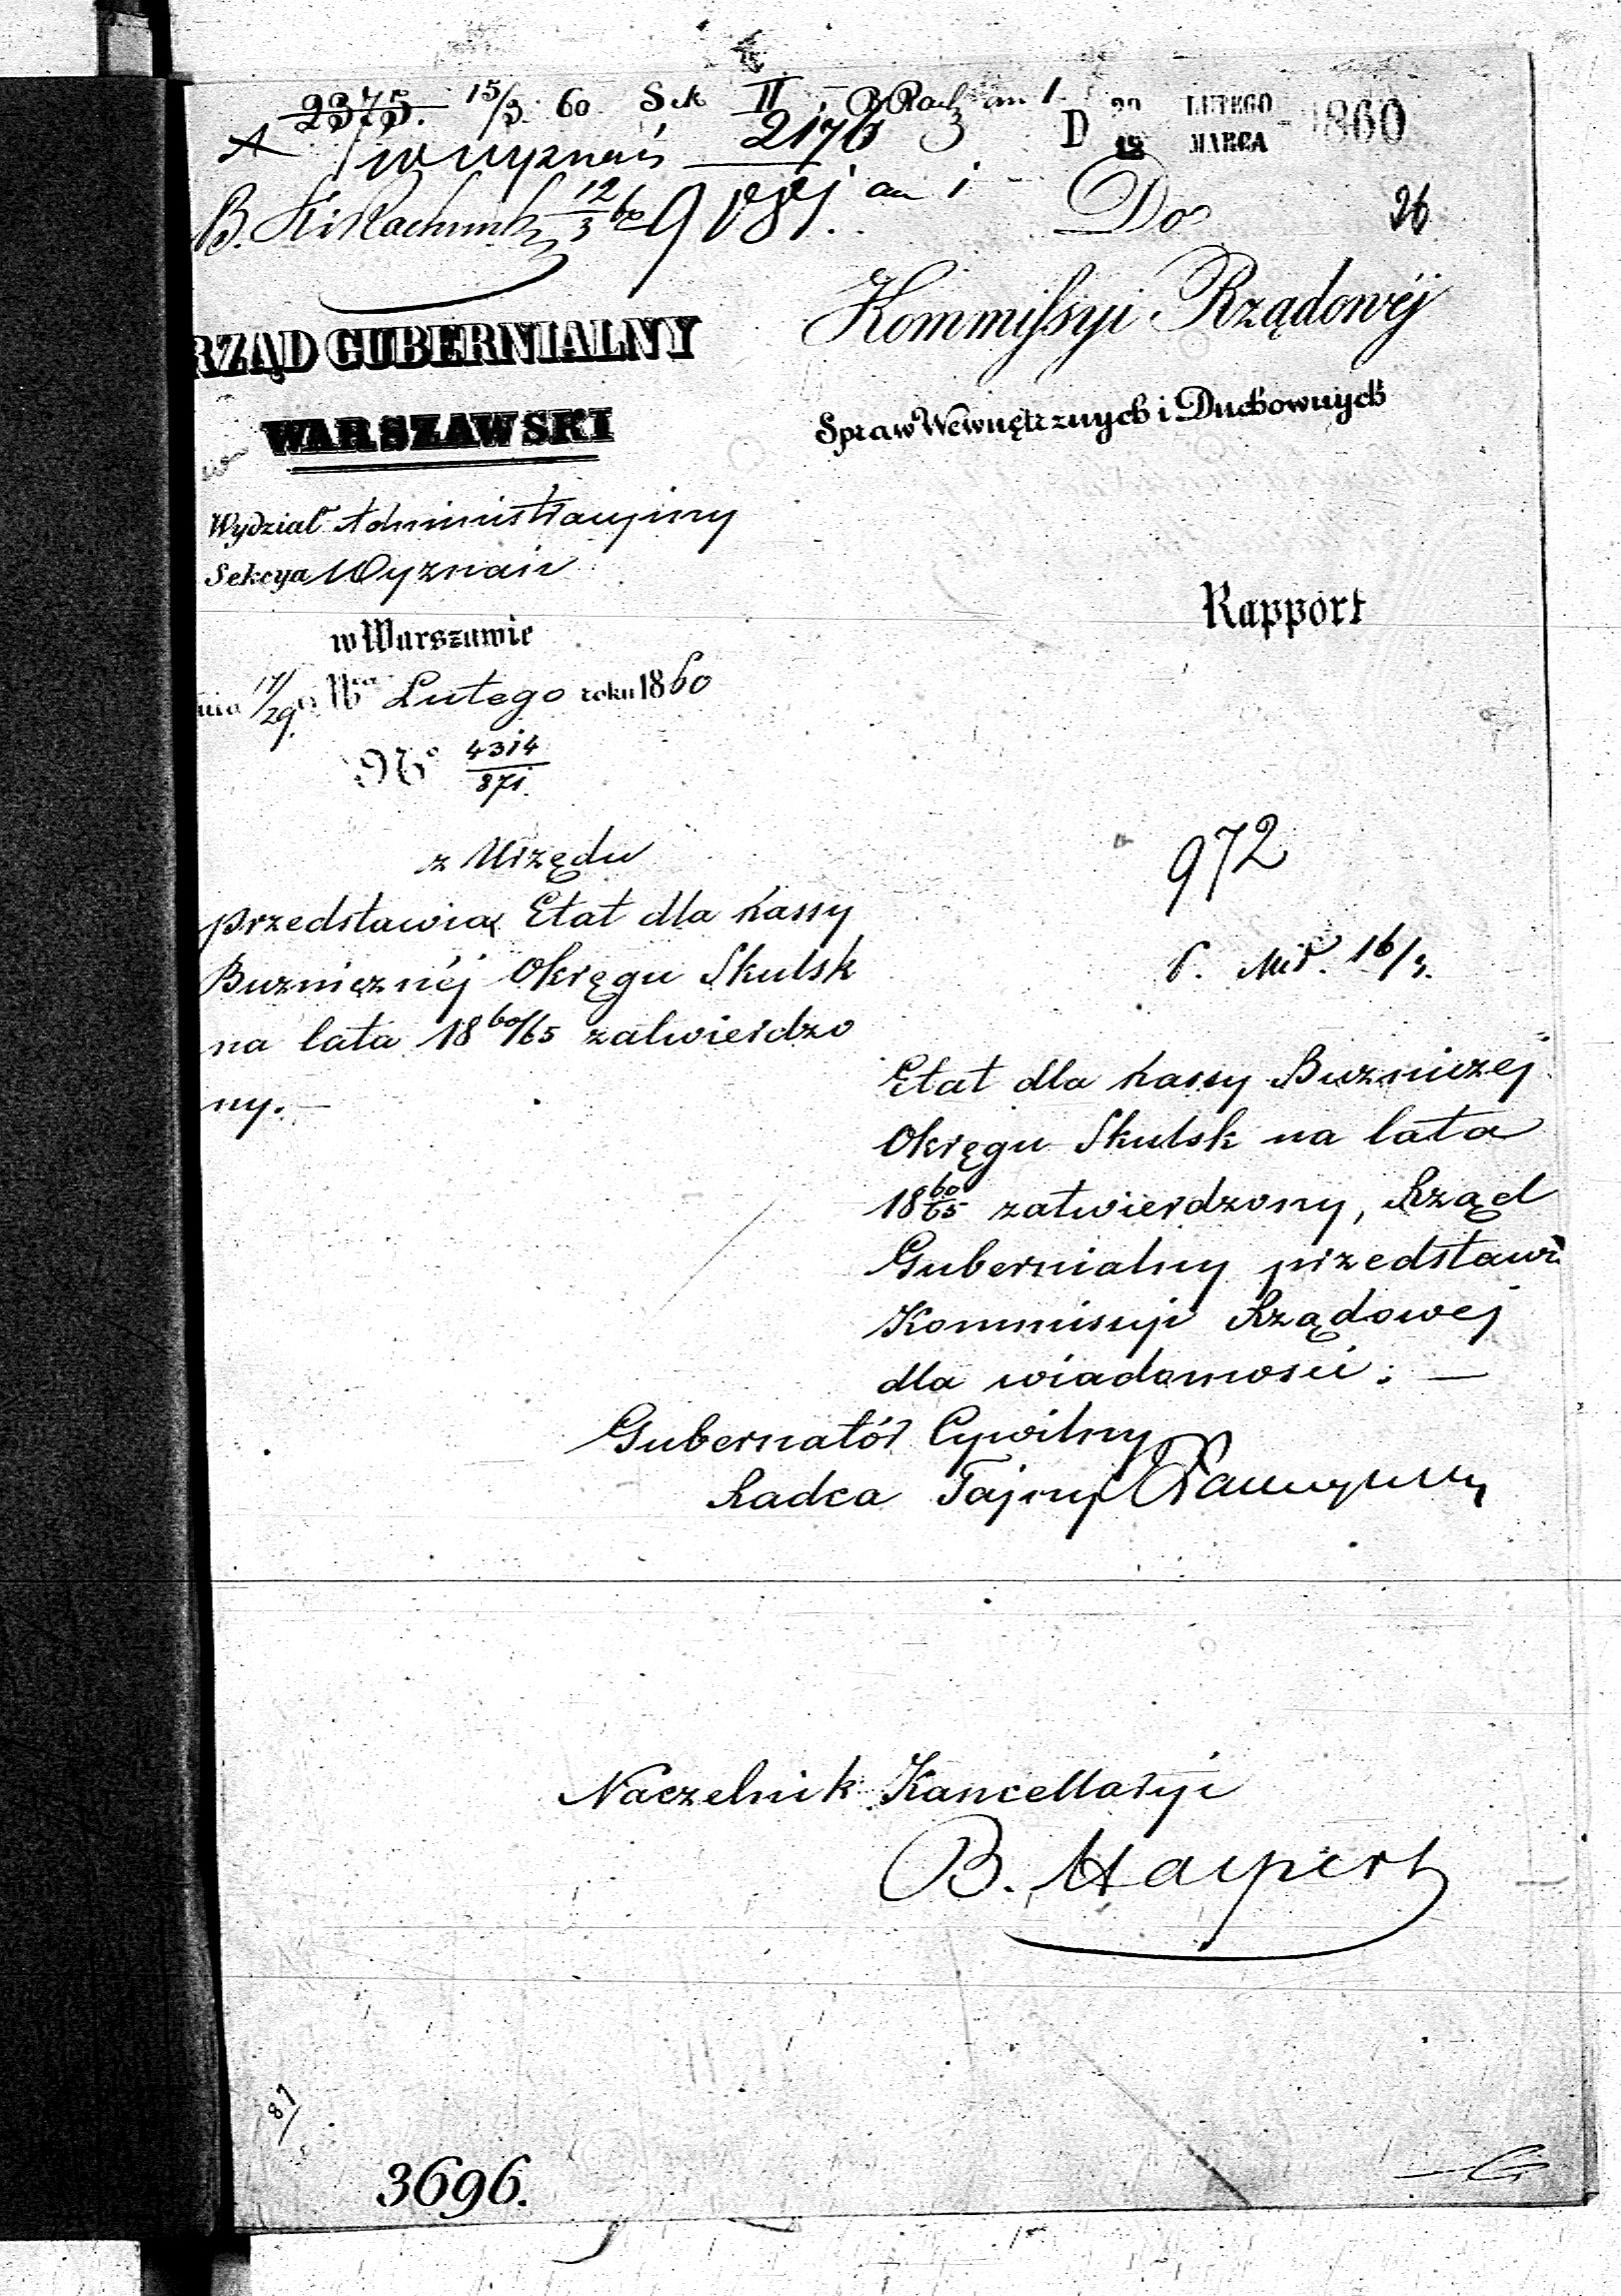 2375. 15/3 60 Sek II
D LUTEGO MARCA 1860
wyznań 2176
B. 12/3 60 an 1
Do 26
Kommissyi Rządowéj
RZĄD GUBERNIALNY
WARSZAWSKI
Spraw Wewnętrznych i Duchownych
Wydział Administracyjny
Sekcya Wyznań
Rapport
w Warszawie
nia 17/29 Lutego roku 1860
No 4314/871.
972
z Urzędu
przedstawia Etat dla kassy
Buznicznéj Okręgu Skulsk
na lata 18 60/65 zatwierdzo
ny. —
16/3.
Etat dla kassy Buzniczej
Okręgu Skulsk na lata
18 60/65 zatwierdzony, Rząd
Gubernialny przedstawi
Kommissyi Rządowej
dla wiadomości; —
Gubernatór Cywilny
Radca Tajny
Naczelnik Kancellaryi
B. Halpert
87
3696.